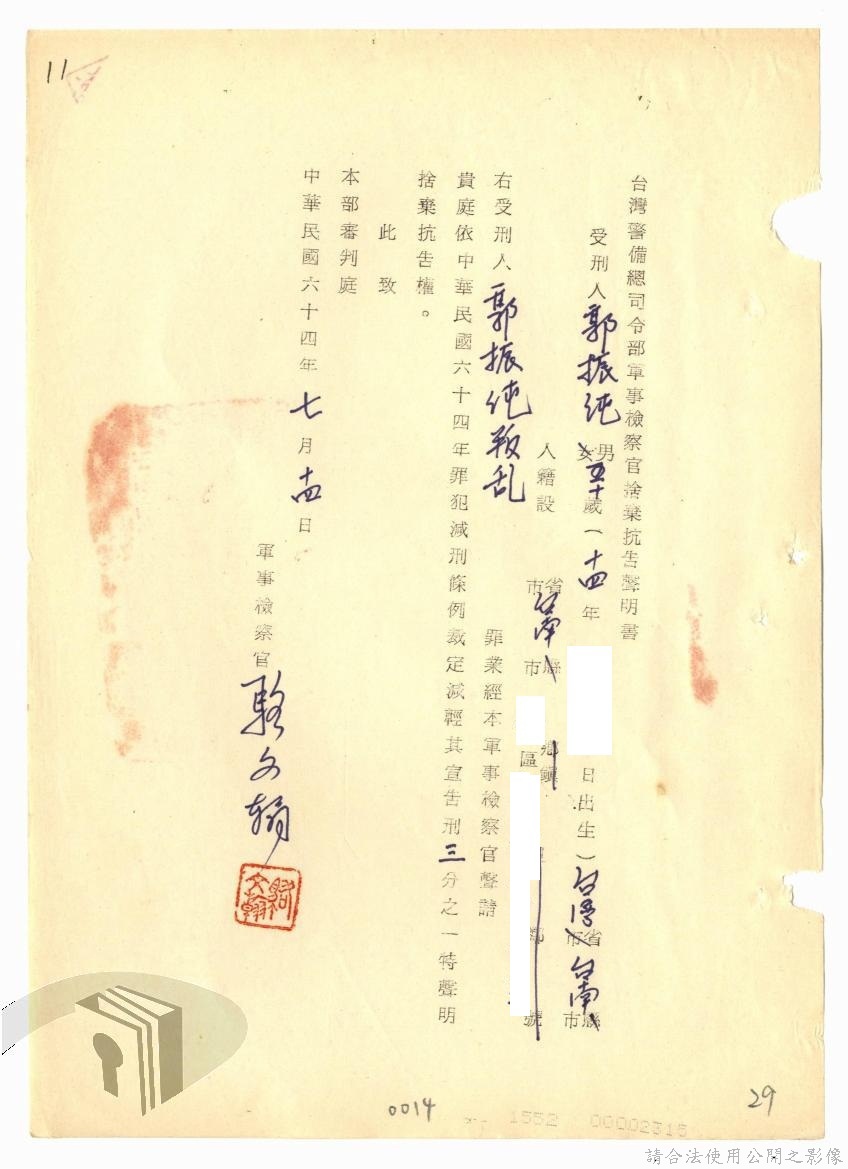 11
台灣警備總司令部軍事檢察官捨棄抗告聲明書
受刑人郭振純男女五十歲（十四年
日出生）台灣省市台南縣市
人籍設
省市台南縣市
鄉鎮區
鄰
號
右受刑人郭振純叛乱罪業經本軍事檢察官聲請
貴庭依中華民國六十四年罪犯減刑條例裁定減輕其宣告刑三分之一特聲明
捨棄抗告權。
此致
本部審判庭
中華民國六十四年七月十四日
軍事檢察官駱文翰
駱文翰
0014
1552 00002315
29
請合法使用公開之影像